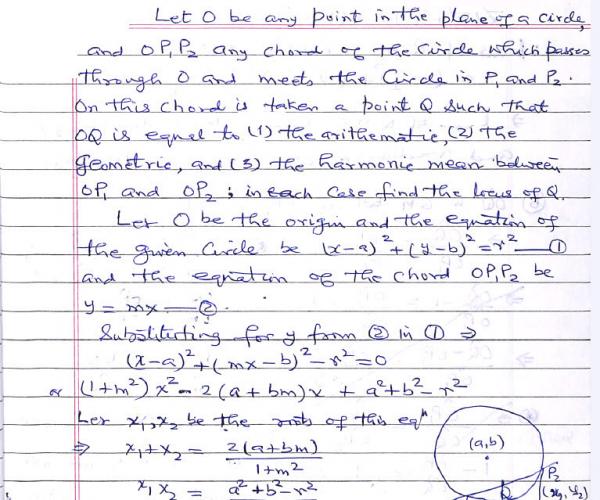 Let O be any point in the plane of a circle,
and OP₁P₂ any chord of the Circle which passes
through O and meets the Circle in P₁ and P₂.
On this chord is taken a point Q such that
OQ is equal to (1) the arithematic, (2) the
geometric, and (3) the harmonic mean between
OP₁ and OP₂; in each case find the locus of Q.
Let O be the origin and the equation of
the given Circle be (x-a)²+(y-b)²=r² — ①
and the equation of the chord OP₁P₂ be
y = mx — ②.
Substituting for y from ② in ① ⇒
(x-a)²+(mx-b)²-r²=0
or (1+m²)x²-2(a+bm)x + a²+b²-r²
Let x₁,x₂ be the roots of this eqⁿ
⇒ x₁+x₂ = 2(a+bm)/1+m²
x₁x₂ = a²+b²-r²
(a,b)
P₂
Q